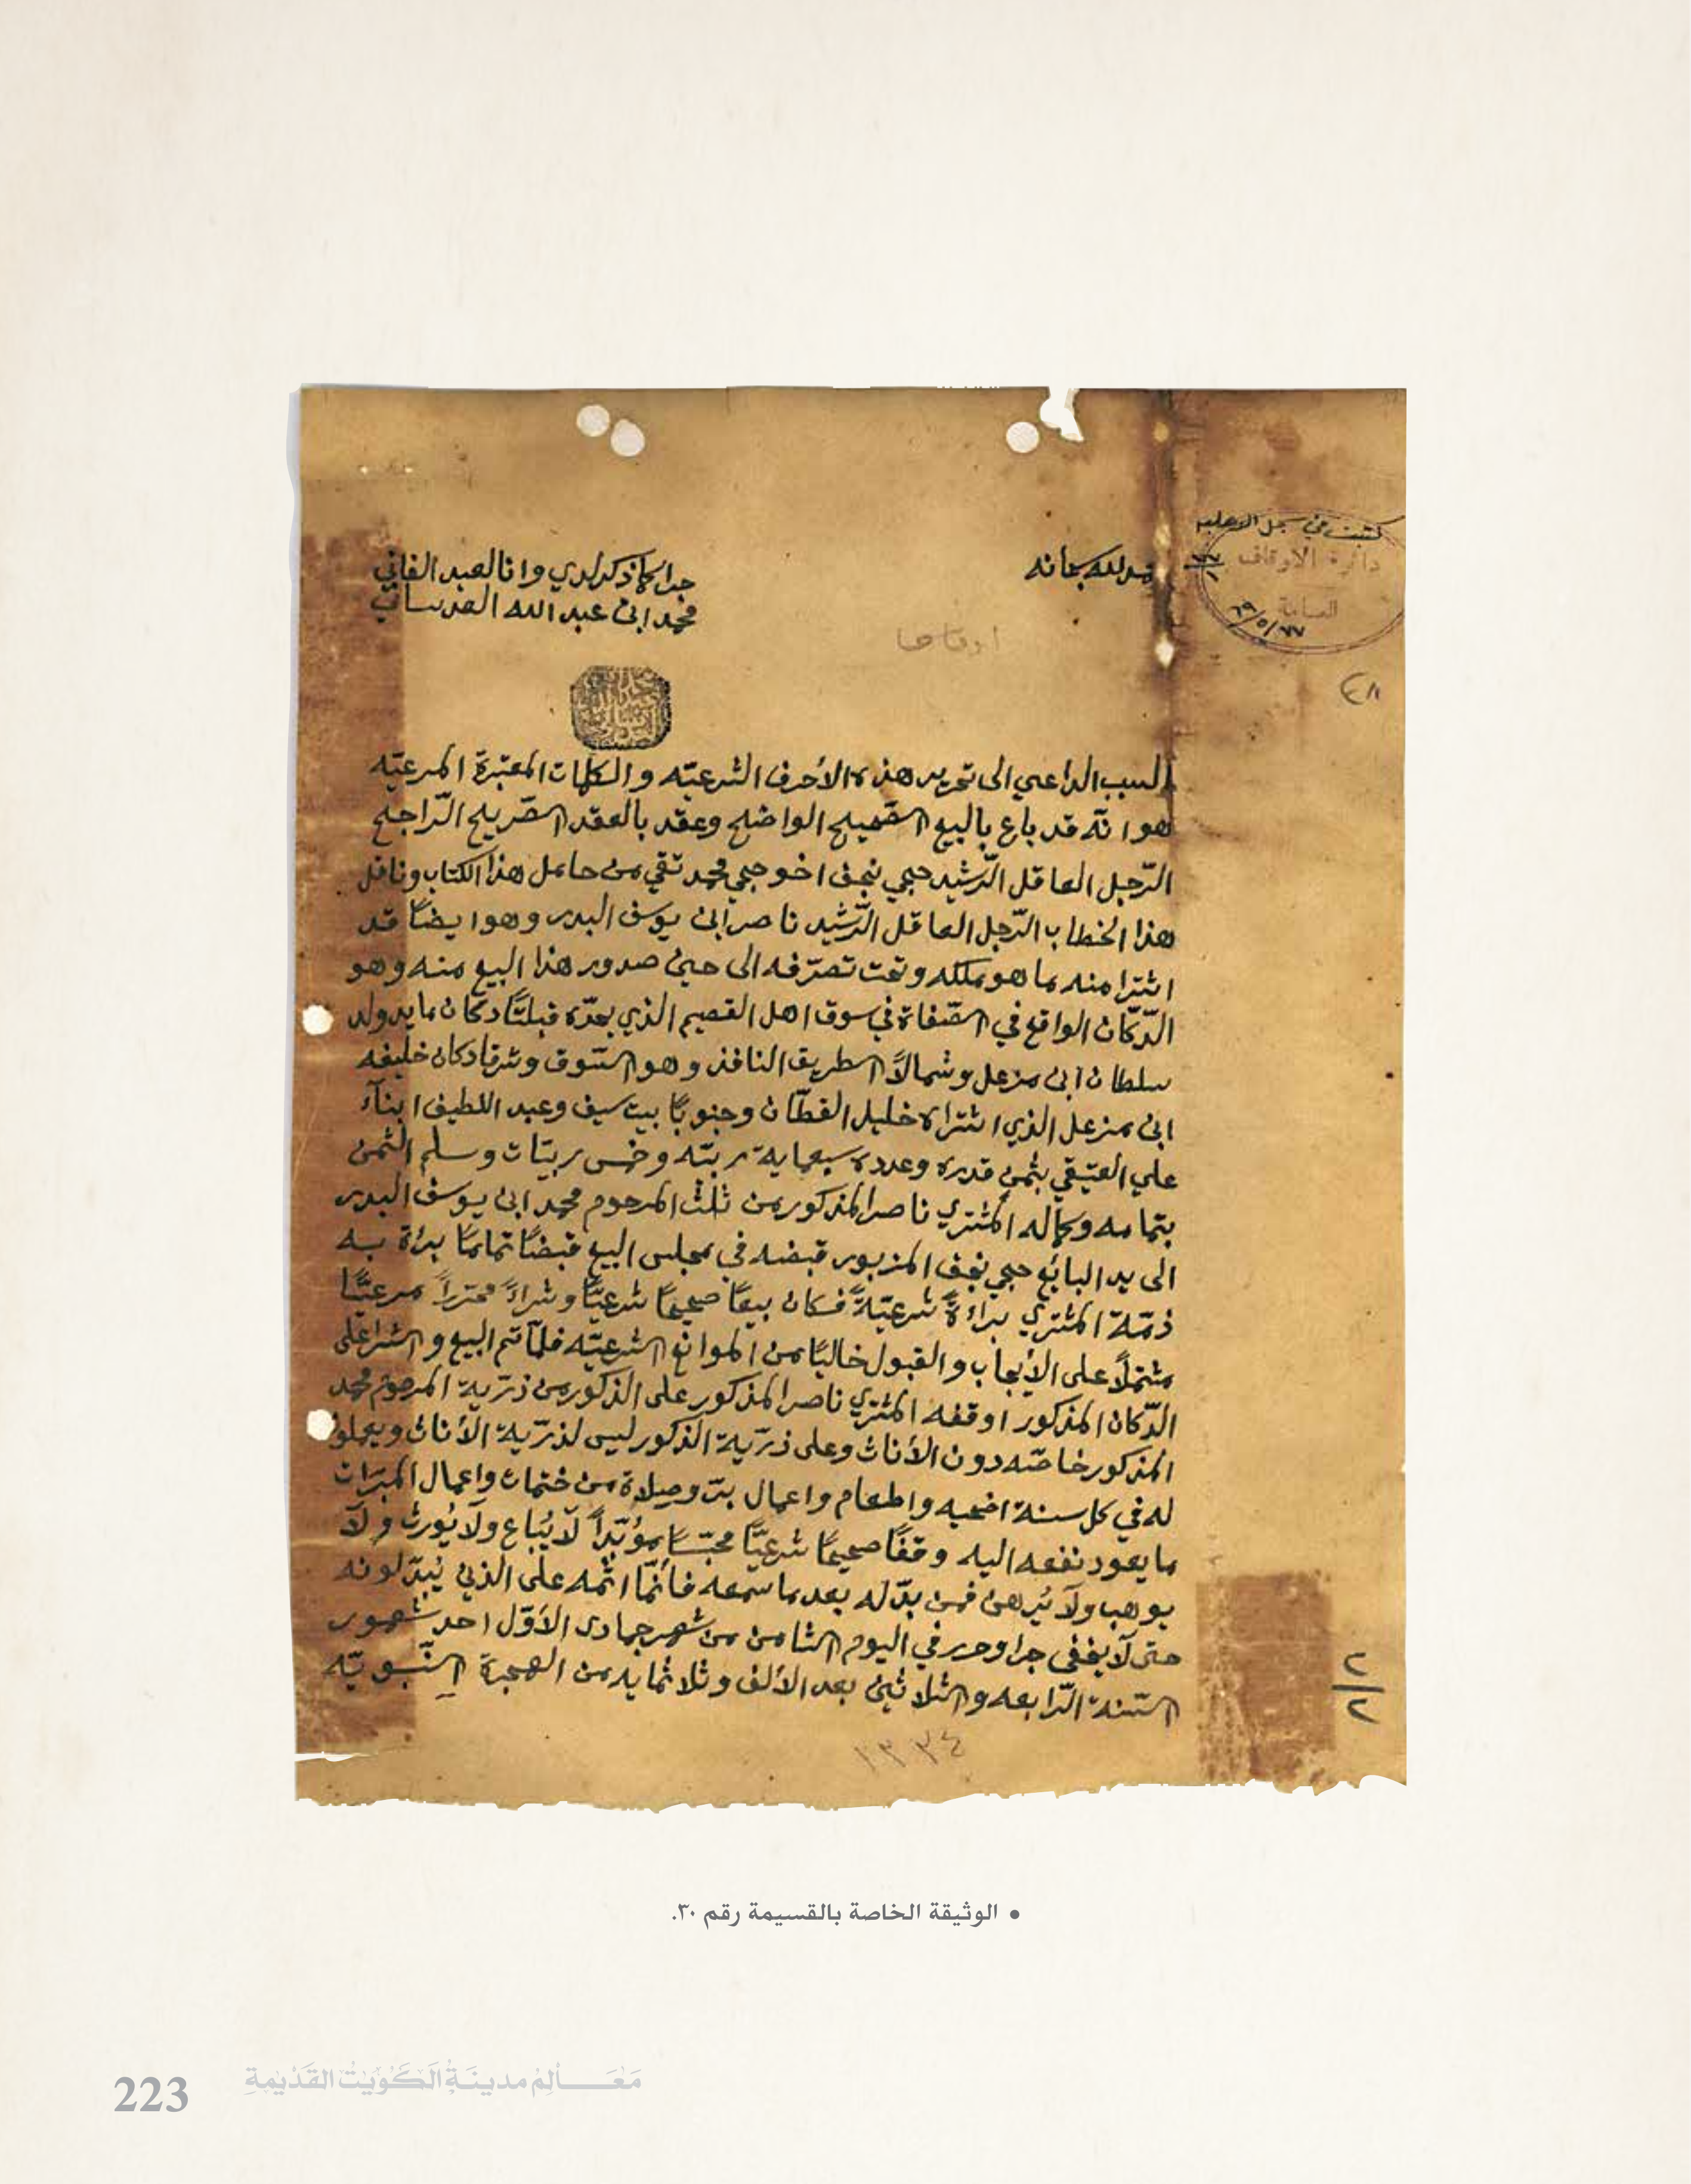 كتبت في سجل الاهلية
دائرة الاوقاف
العامة
٦٩/٥/٢٧
٤٨
حمد لله سبحانه
جرا كما ذكر لدي وانا العبد الفاني
محمد ابن عبد الله العدساني
السبب الداعي الى تحرير هذه الأحرف الشرعيّه والكلمات المعتبرة المرعيّه
هو انّه قد باع بالبيع الصّحيح الواضح وعقد بالعقد الصّريح الرّاجح
الرّجل العاقل الرّشيد حجي نجف اخو حجي محمد تقي من حامل هذا الكتاب وناقل
هذا الخطاب الرّجل العاقل الرّشيد ناصر ابن يوسف البدر وهو ايضًا قد
اشترا منه ما هو ملكه وتحت تصرّفه الى حين صدور هذا البيع منه وهو
الدّكّان الواقع في الصّفاة في سوق اهل القصيم الذي يحدّه قبلتًا دكان مايد ولد
سلطان ابن مزعل وشمالاً الطريق النافذ وهو السّوق وشرقا دكان خليفه
ابن مزعل الذي اشتراه خليل القطّان وجنوبًا بيت سيف وعبد اللطيف ابنآء
علي العتيقي بثمن قدره وعدده سبعماية ربيّه وخمس ربيّات وسلم الثمن
بتمامه وكماله المشتري ناصر المذكور من ثلث المرحوم محمد ابن يوسف البدر
الى يد البائع حجي نجف المزبور قبضه في مجلس البيع قبضًا تمامًا برئة به
ذمّة المشتري براءةً شرعيّةً فكان بيعًا صحيحًا شرعيًّا وشراءً محرراً مرعيًّا
مشتملاً على الأيجاب والقبول خاليًا من الموانع الشرعيّه فلمّا تم البيع والشرا على
الدّكان المذكور اوقفه المشتري ناصر المذكور على الذكور من ذرّية المرحوم محمد
المذكور خاصّه دون الأناث وعلى ذرّية الذكور ليس لذرّية الأناث ويعملون
له في كل سنة اضحيه واطعام واعمال برّ وصلاة من ختمات واعمال المبرّات
ما يعود نفعه اليه وقفًا صحيحًا شرعيًّا محبّسًا مؤبّداً لَا يُباع ولَا يُورث ولَا
يوهب ولَا يُرهن فمن بدّله بعد ما سمعه فأنّما اثمه على الذين يُبدّلونه
حتى لَا يخفى جرا وحرر في اليوم الثامن من شهر جمادى الأوّل احد شهور
السّنة الرّابعه والثلاثين بعد الألف وثلاثمايه من الهجرة النّبويّه
١٣٣٤
٢
٢
• الوثيقة الخاصة بالقسيمة رقم ٣٠.
223 مَعَالِمُ مدينَةُ الكُوَيْتُ القَدْيمةِ